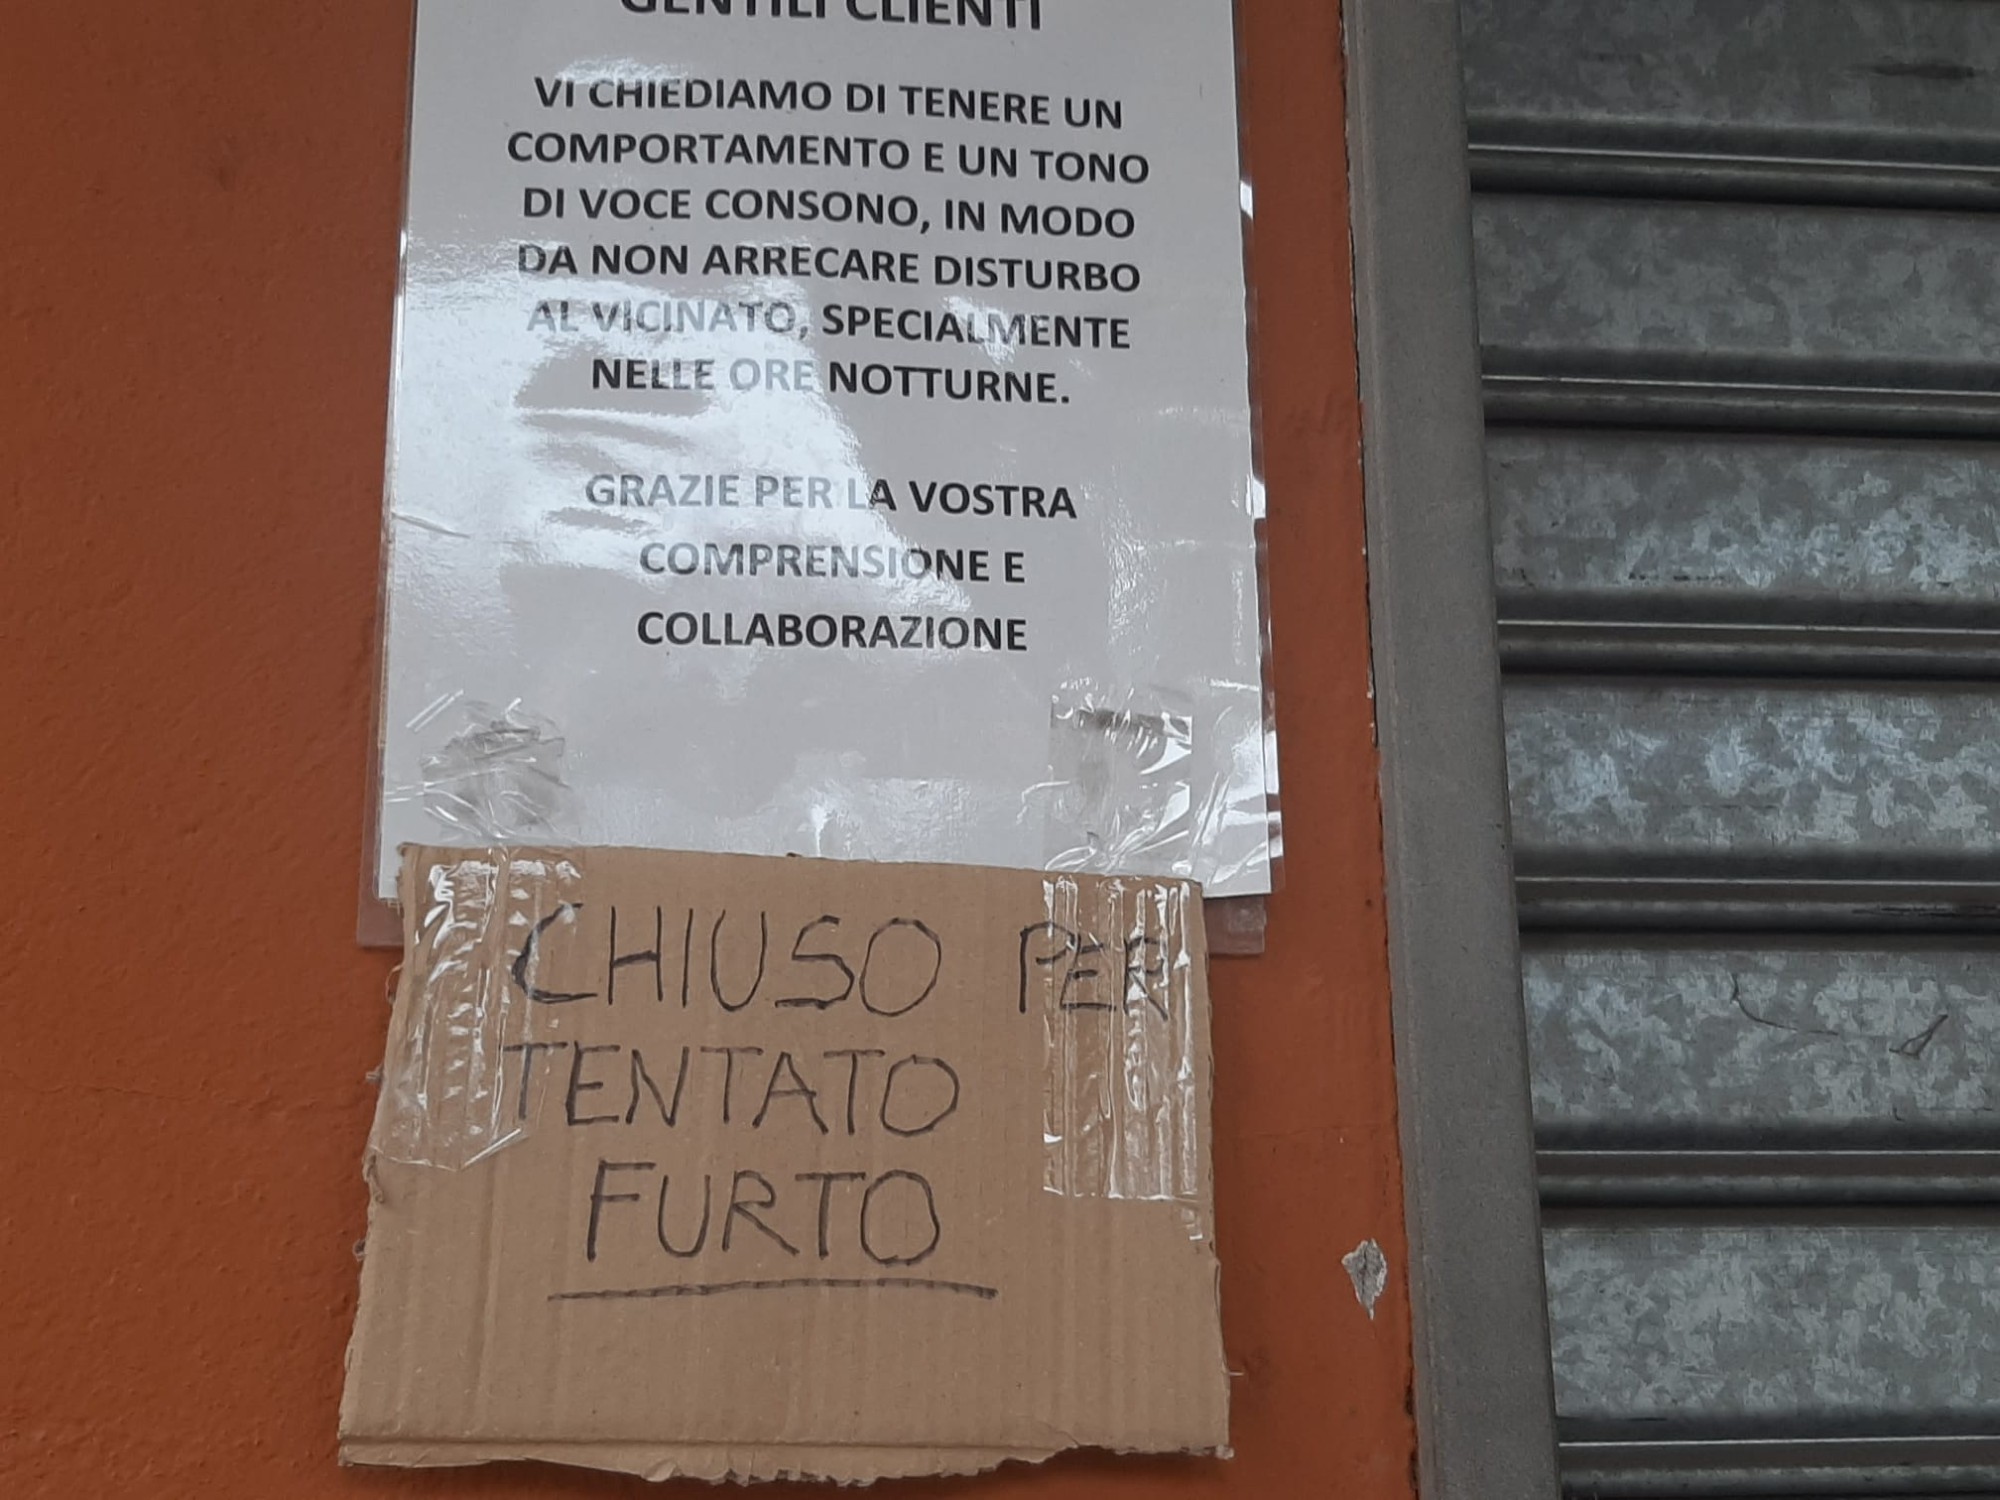 GENTILI CLIENTI
VI CHIEDIAMO DI TENERE UN
COMPORTAMENTO E UN TONO
DI VOCE CONSONO, IN MODO
DA NON ARRECARE DISTURBO
AL VICINATO, SPECIALMENTE
NELLE ORE NOTTURNE.
GRAZIE PER LA VOSTRA
COMPRENSIONE E
COLLABORAZIONE
CHIUSO PER
TENTATO
FURTO